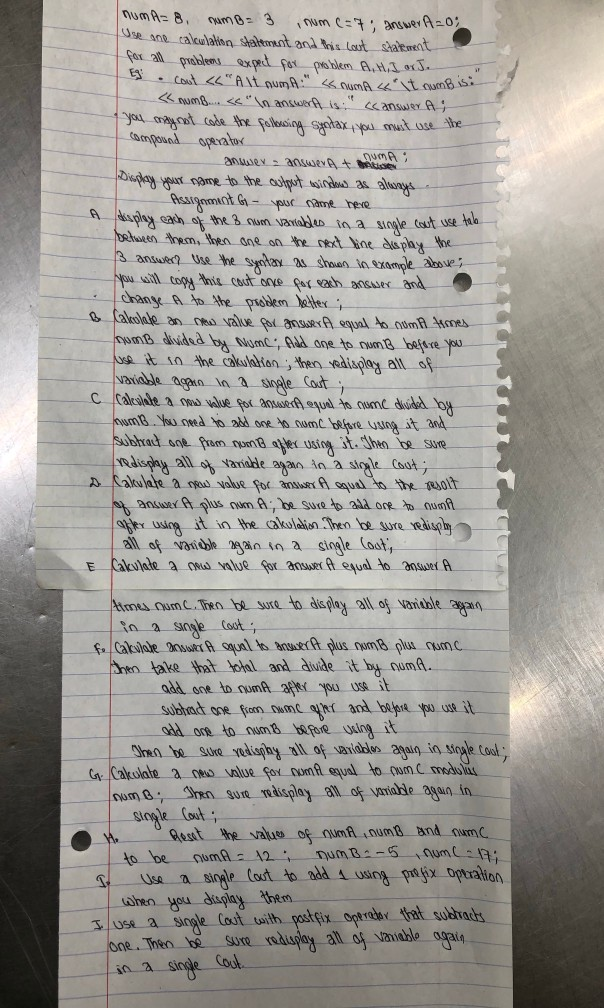 numA = 8, numB = 3 , num C = 7 ; answerA = 0;
Use one calculation statement and this cout statement
for all problems expect for problem A, H, I or J.
Eg: • cout << "A\t numA:" << numA << "\t numB is:"
<< numB... << "\n answerA is:" << answer A ;
• you may not code the following syntax, you must use the
compound operator
answer = answerA + numA ;
Display your name to the output window as always.
Assignment G - your name here
A display each of the 3 num variables in a single cout use tab
between them, then one on the next line display the
3 answer? Use the syntax as shown in example above;
you will copy this cout once for each answer and
change A to the problem letter ;
B. Calculate an new value for answerA equal to numA times
numB divided by NumC; Add one to numB before you
use it in the calculation ; then redisplay all of
variable again in a single Cout ;
C Calculate a new value for answerA equal to numc divided by
numB. You need to add one to numc before using it and
subtract one from numB after using it. Then be sure
redisplay all of variable again in a single Cout ;
D Calculate a new value for answer A equal to the result
of answer A plus num A ; be sure to add one to numA
after using it in the calculation. Then be sure redisply
all of variable again in a single Cout;
E Calculate a new value for answer A equal to answer A
times numC. Then be sure to display all of variable again
in a single Cout ;
F. Calculate answer A equal to answer A plus numB plus numC
then take that total and divide it by numA.
add one to numA after you use it
subtract one from numc after and before you use it
add one to numB before using it
Then be sure redisplay all of variables again in single Cout;
G. Calculate a new value for numA equal to num C modulus
numB ; Then sure redisplay all of variable again in
single Cout ;
H. Reset the values of numA, numB and numC
to be numA = 12 ; numB = -5 , numC = 17;
I. Use a single Cout to add 1 using prefix operation
when you display them
I use a single Cout with postfix operator that subtracts
one. Then be sure redisplay all of variable again
in a single Cout.